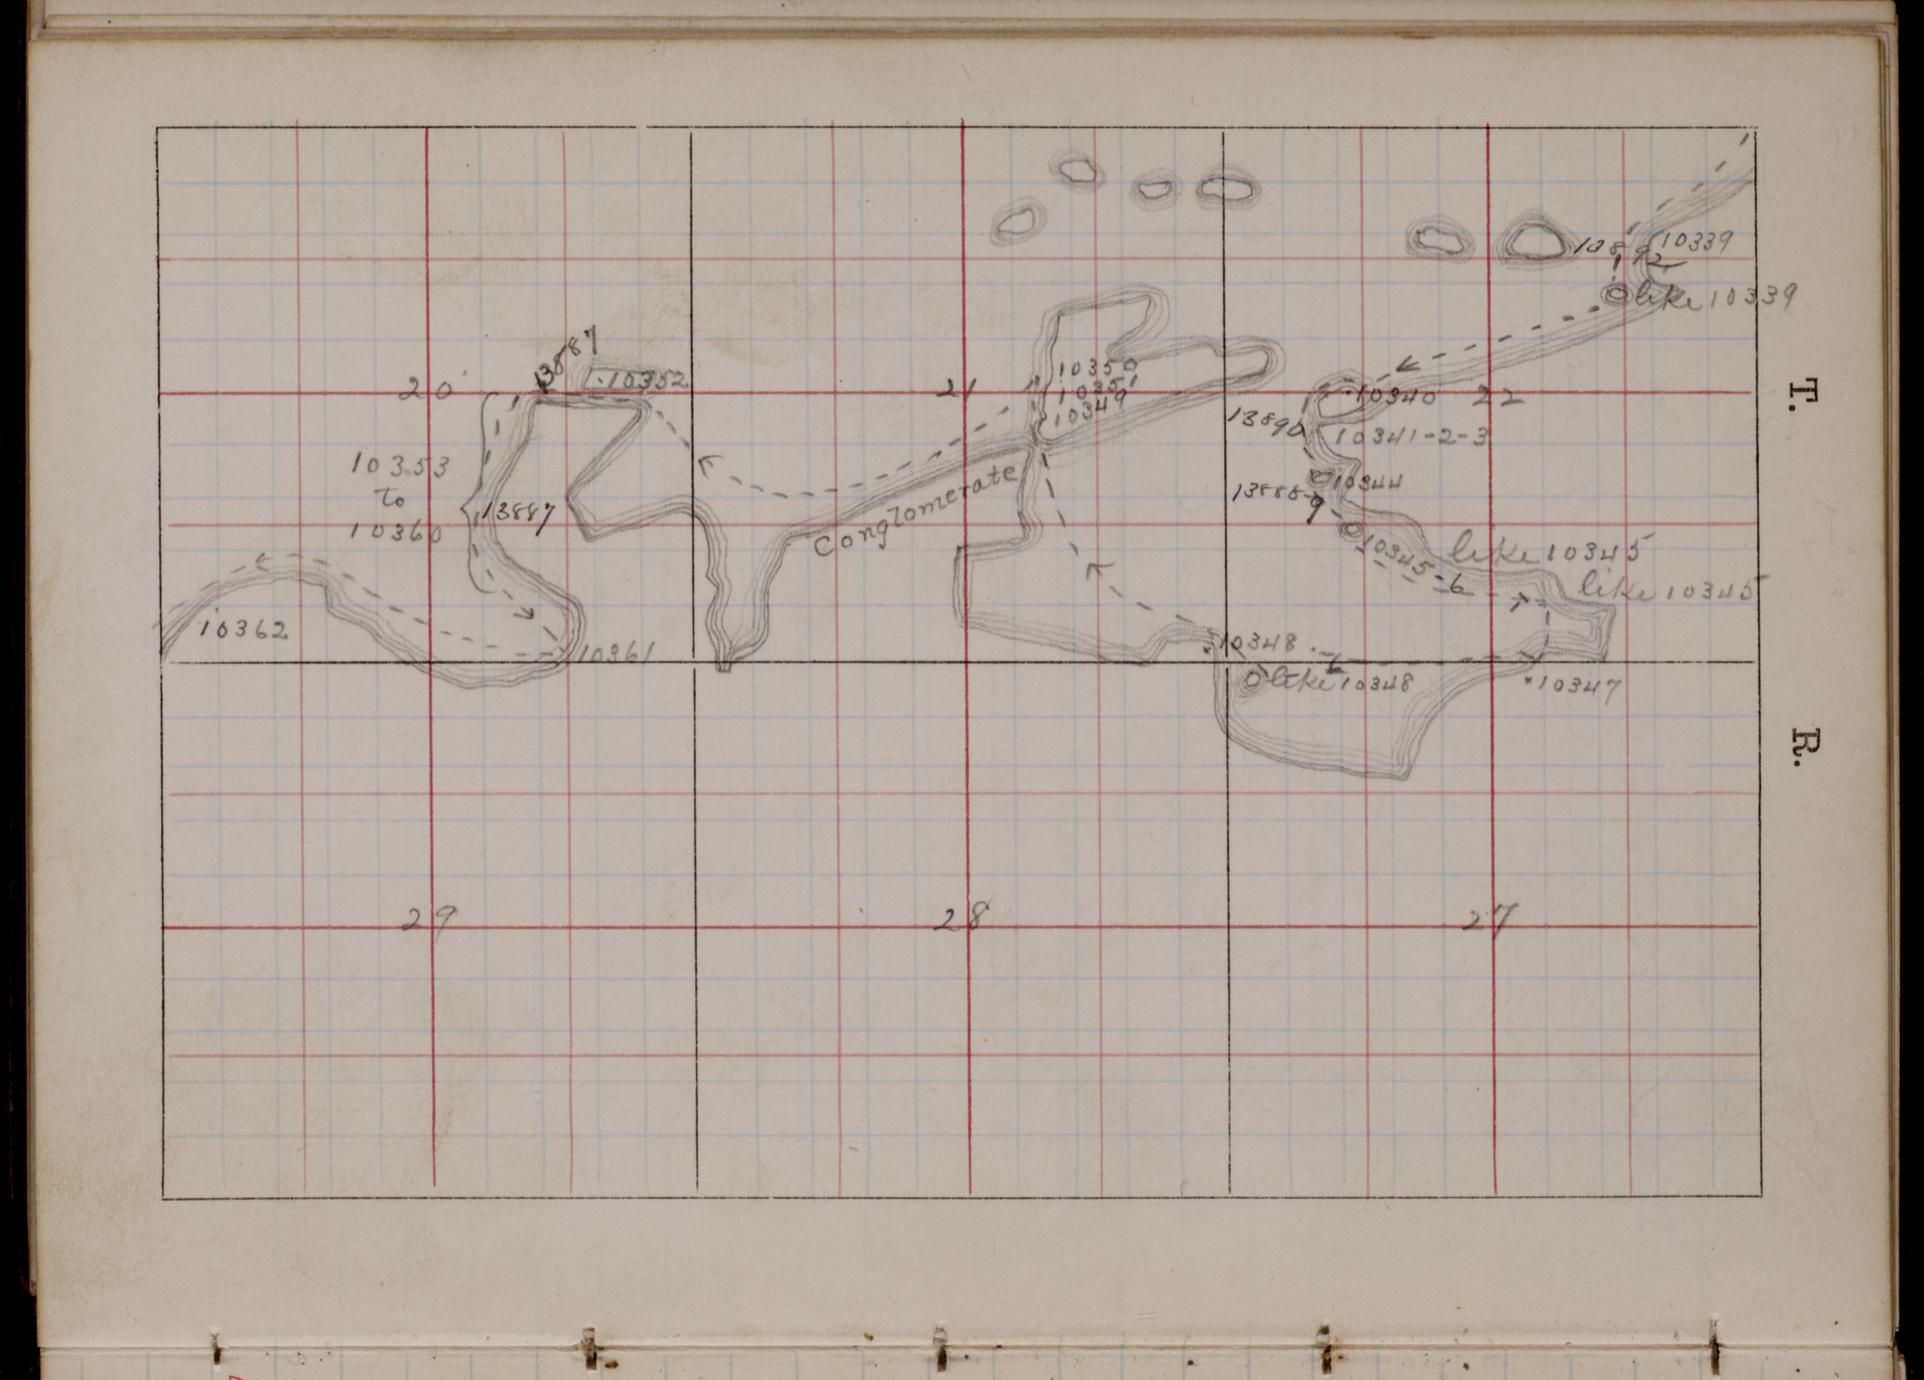 10339
like 10339
T.
13887
1.10352
20
21
10350
10351
10349
10340
22
13890
10341-2-3
10353
to
10360
13887
Conglomerate
10344
13888-9
10345-6
like 10345
like 10345
10362
10361
10348
like 10348
10347
R.
29
28
27